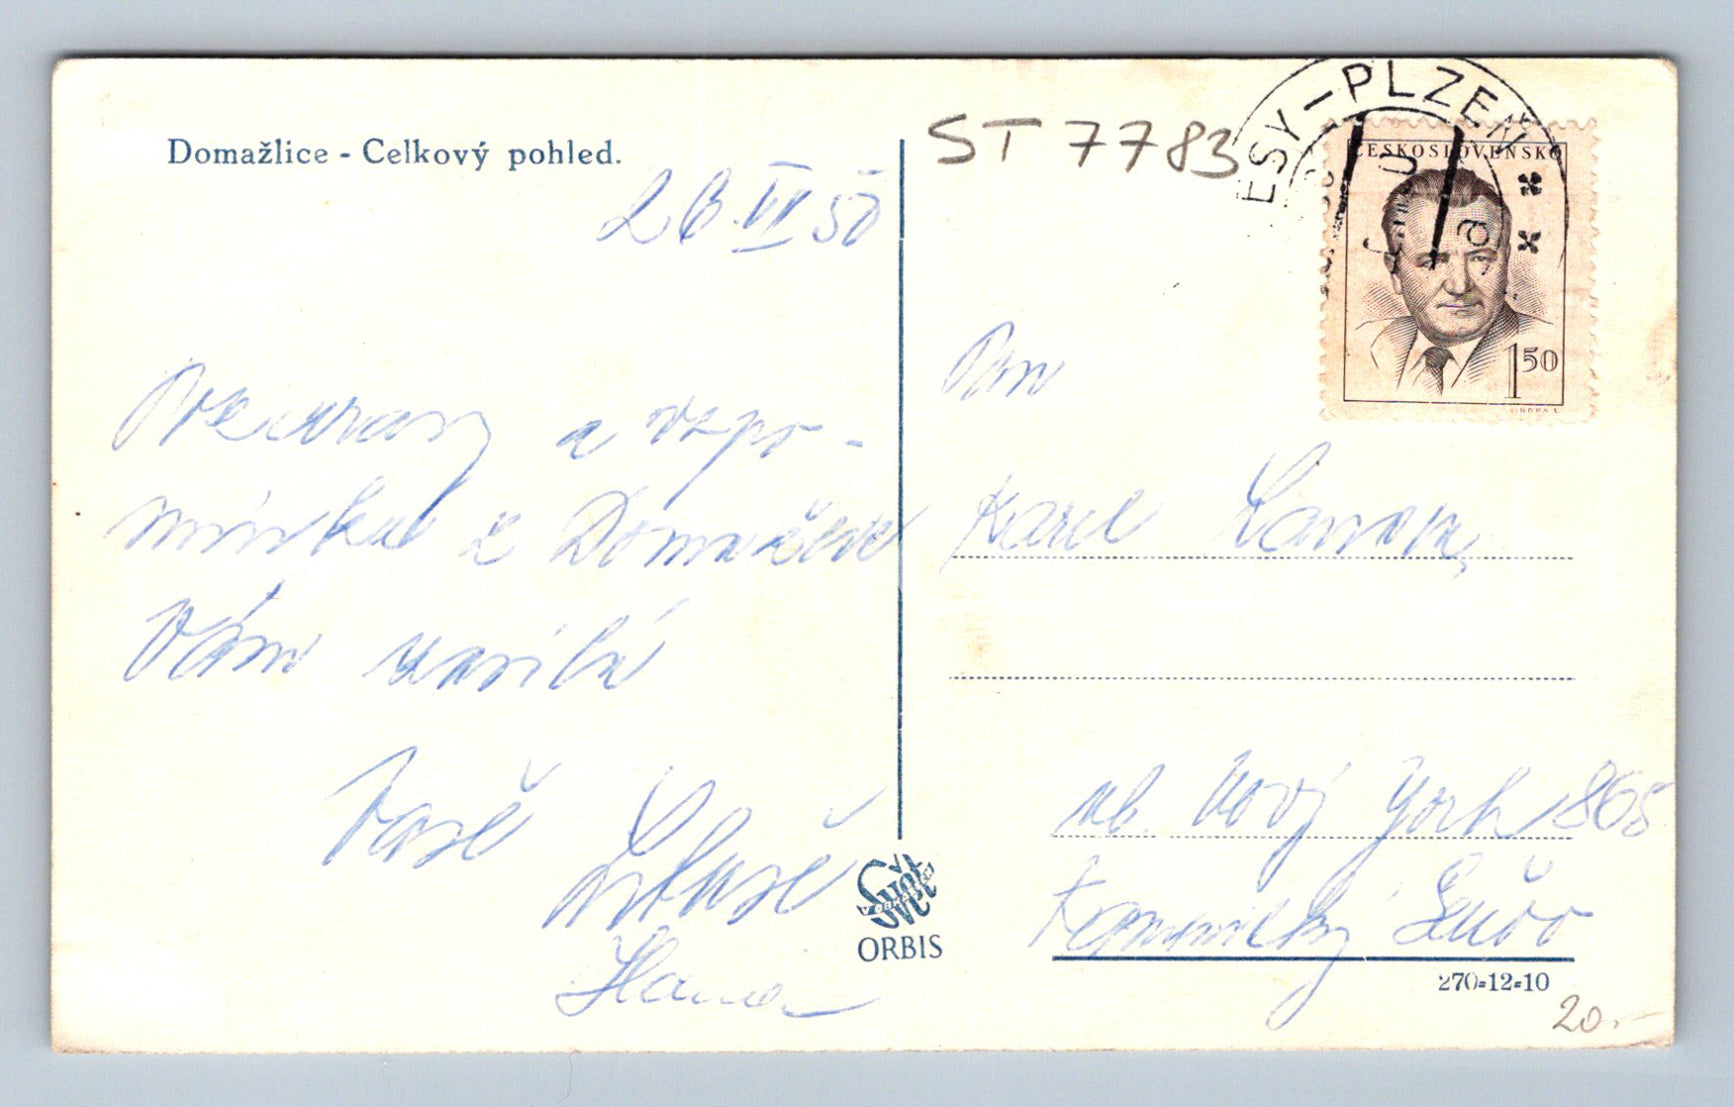 Domažlice - Celkový pohled.
ST 7783
ESY-PLZEŇ
ČESKOSLOVENSKO
1 50
26 VI 50
Pan
Pozdravy a vzpo-
mínku z Domažlic
Karel
Vám zasílá
Vaše
Libuše
Hana
ul. Nový York 865
SVĚT
V OBRAZECH
ORBIS
270-12-10
20.-